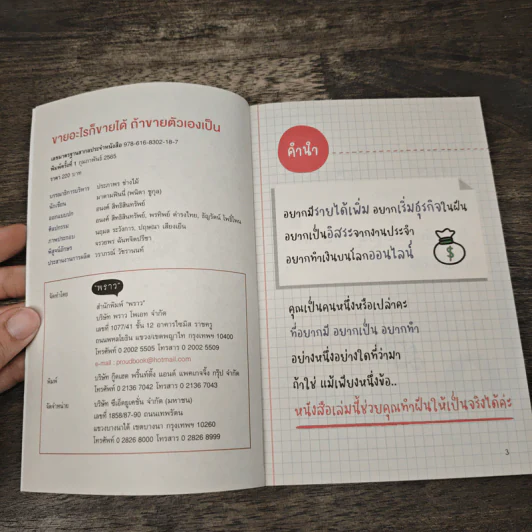 ขายอะไรก็ขายได้ ถ้าขายตัวเองเป็น
เลขมาตรฐานสากลประจำหนังสือ 978-616-8302-18-7
พิมพ์ครั้งที่ 1 กุมภาพันธ์ 2565
ราคา 220 บาท
บรรณาธิการบริหาร ประภาพร ช่างไม้
นักเขียน มาดามฟินนี่ (พนิตา ชูกุล)
ออกแบบปก อนงค์ สิทธิสินทรัพย์
ศิลปกรรม อนงค์ สิทธิสินทรัพย์, พรทิพย์ ดำรงไทย, ธัญรัตน์
ภาพประกอบ นฤมล ระวังการ, ปฤษณา เสียงเย็น
พิสูจน์อักษร จรวยพร
ประสานงานการผลิต วราภรณ์ วัชรานนท์
จัดทำโดย "พราว"
สำนักพิมพ์ "พราว"
บริษัท พราว โพเอท จำกัด
เลขที่ 1077/41 ชั้น 12 อาคารไซมิส ราชครู
ถนนพหลโยธิน แขวง/เขตพญาไท กรุงเทพฯ 10400
โทรศัพท์ 0 2002 5505 โทรสาร 0 2002 5509
e-mail : proudbook@hotmail.com
พิมพ์ บริษัท กู๊ดเฮด พริ้นท์ติ้ง แอนด์ แพคเกจจิ้ง กรุ๊ป จำกัด
โทรศัพท์ 0 2136 7042 โทรสาร 0 2136 7043
จัดจำหน่าย บริษัท ซีเอ็ดยูเคชั่น จำกัด (มหาชน)
เลขที่ 1858/87-90 ถนนเทพรัตน
แขวงบางนาใต้ เขตบางนา กรุงเทพฯ 10260
โทรศัพท์ 0 2826 8000 โทรสาร 0 2826 8999
คำนำ
อยากมีรายได้เพิ่ม อยากเริ่มธุรกิจในฝัน
อยากเป็นอิสระจากงานประจำ
อยากทำเงินบนโลกออนไลน์
$
คุณเป็นคนหนึ่งหรือเปล่าคะ
ที่อยากมี อยากเป็น อยากทำ
อย่างหนึ่งอย่างใดที่ว่ามา
ถ้าใช่ แม้เพียงหนึ่งข้อ..
หนังสือเล่มนี้ช่วยคุณทำฝันให้เป็นจริงได้ค่ะ
3